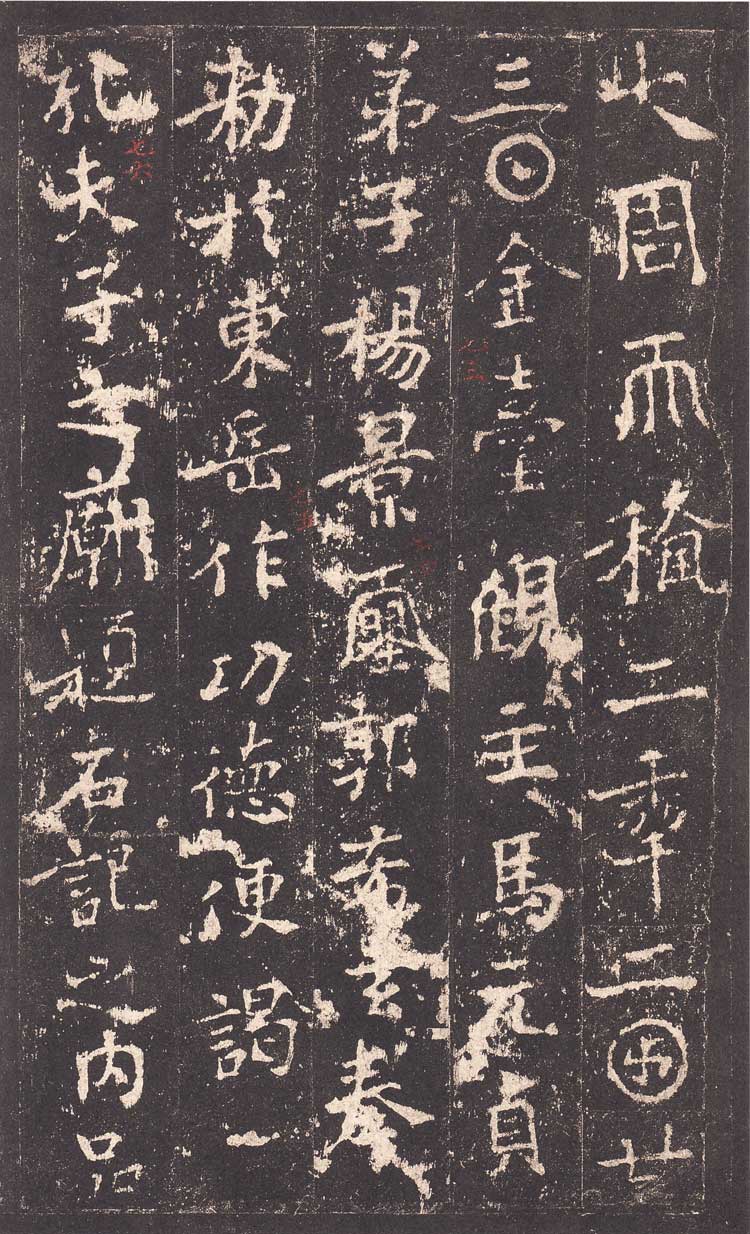 大周𠀑𥠢二𠡦二𠥱廿
三𡆠金臺觀主馬元貞
弟子楊景𡔈郭希玄奉
勅於東岳作功德便謁一
孔夫子之廟題石記之內品